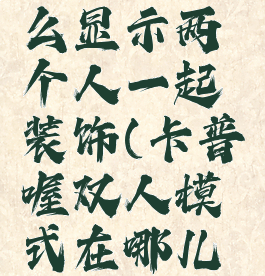 么显示两
个人一起
装饰(卡普
喔双人模
式在哪儿